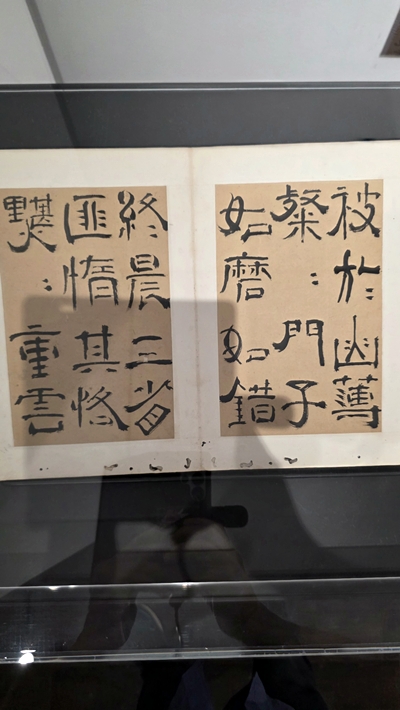 被於幽薄
粲〻門子
如磨如錯
終晨三省
匪惰其恪
黮〻重雲